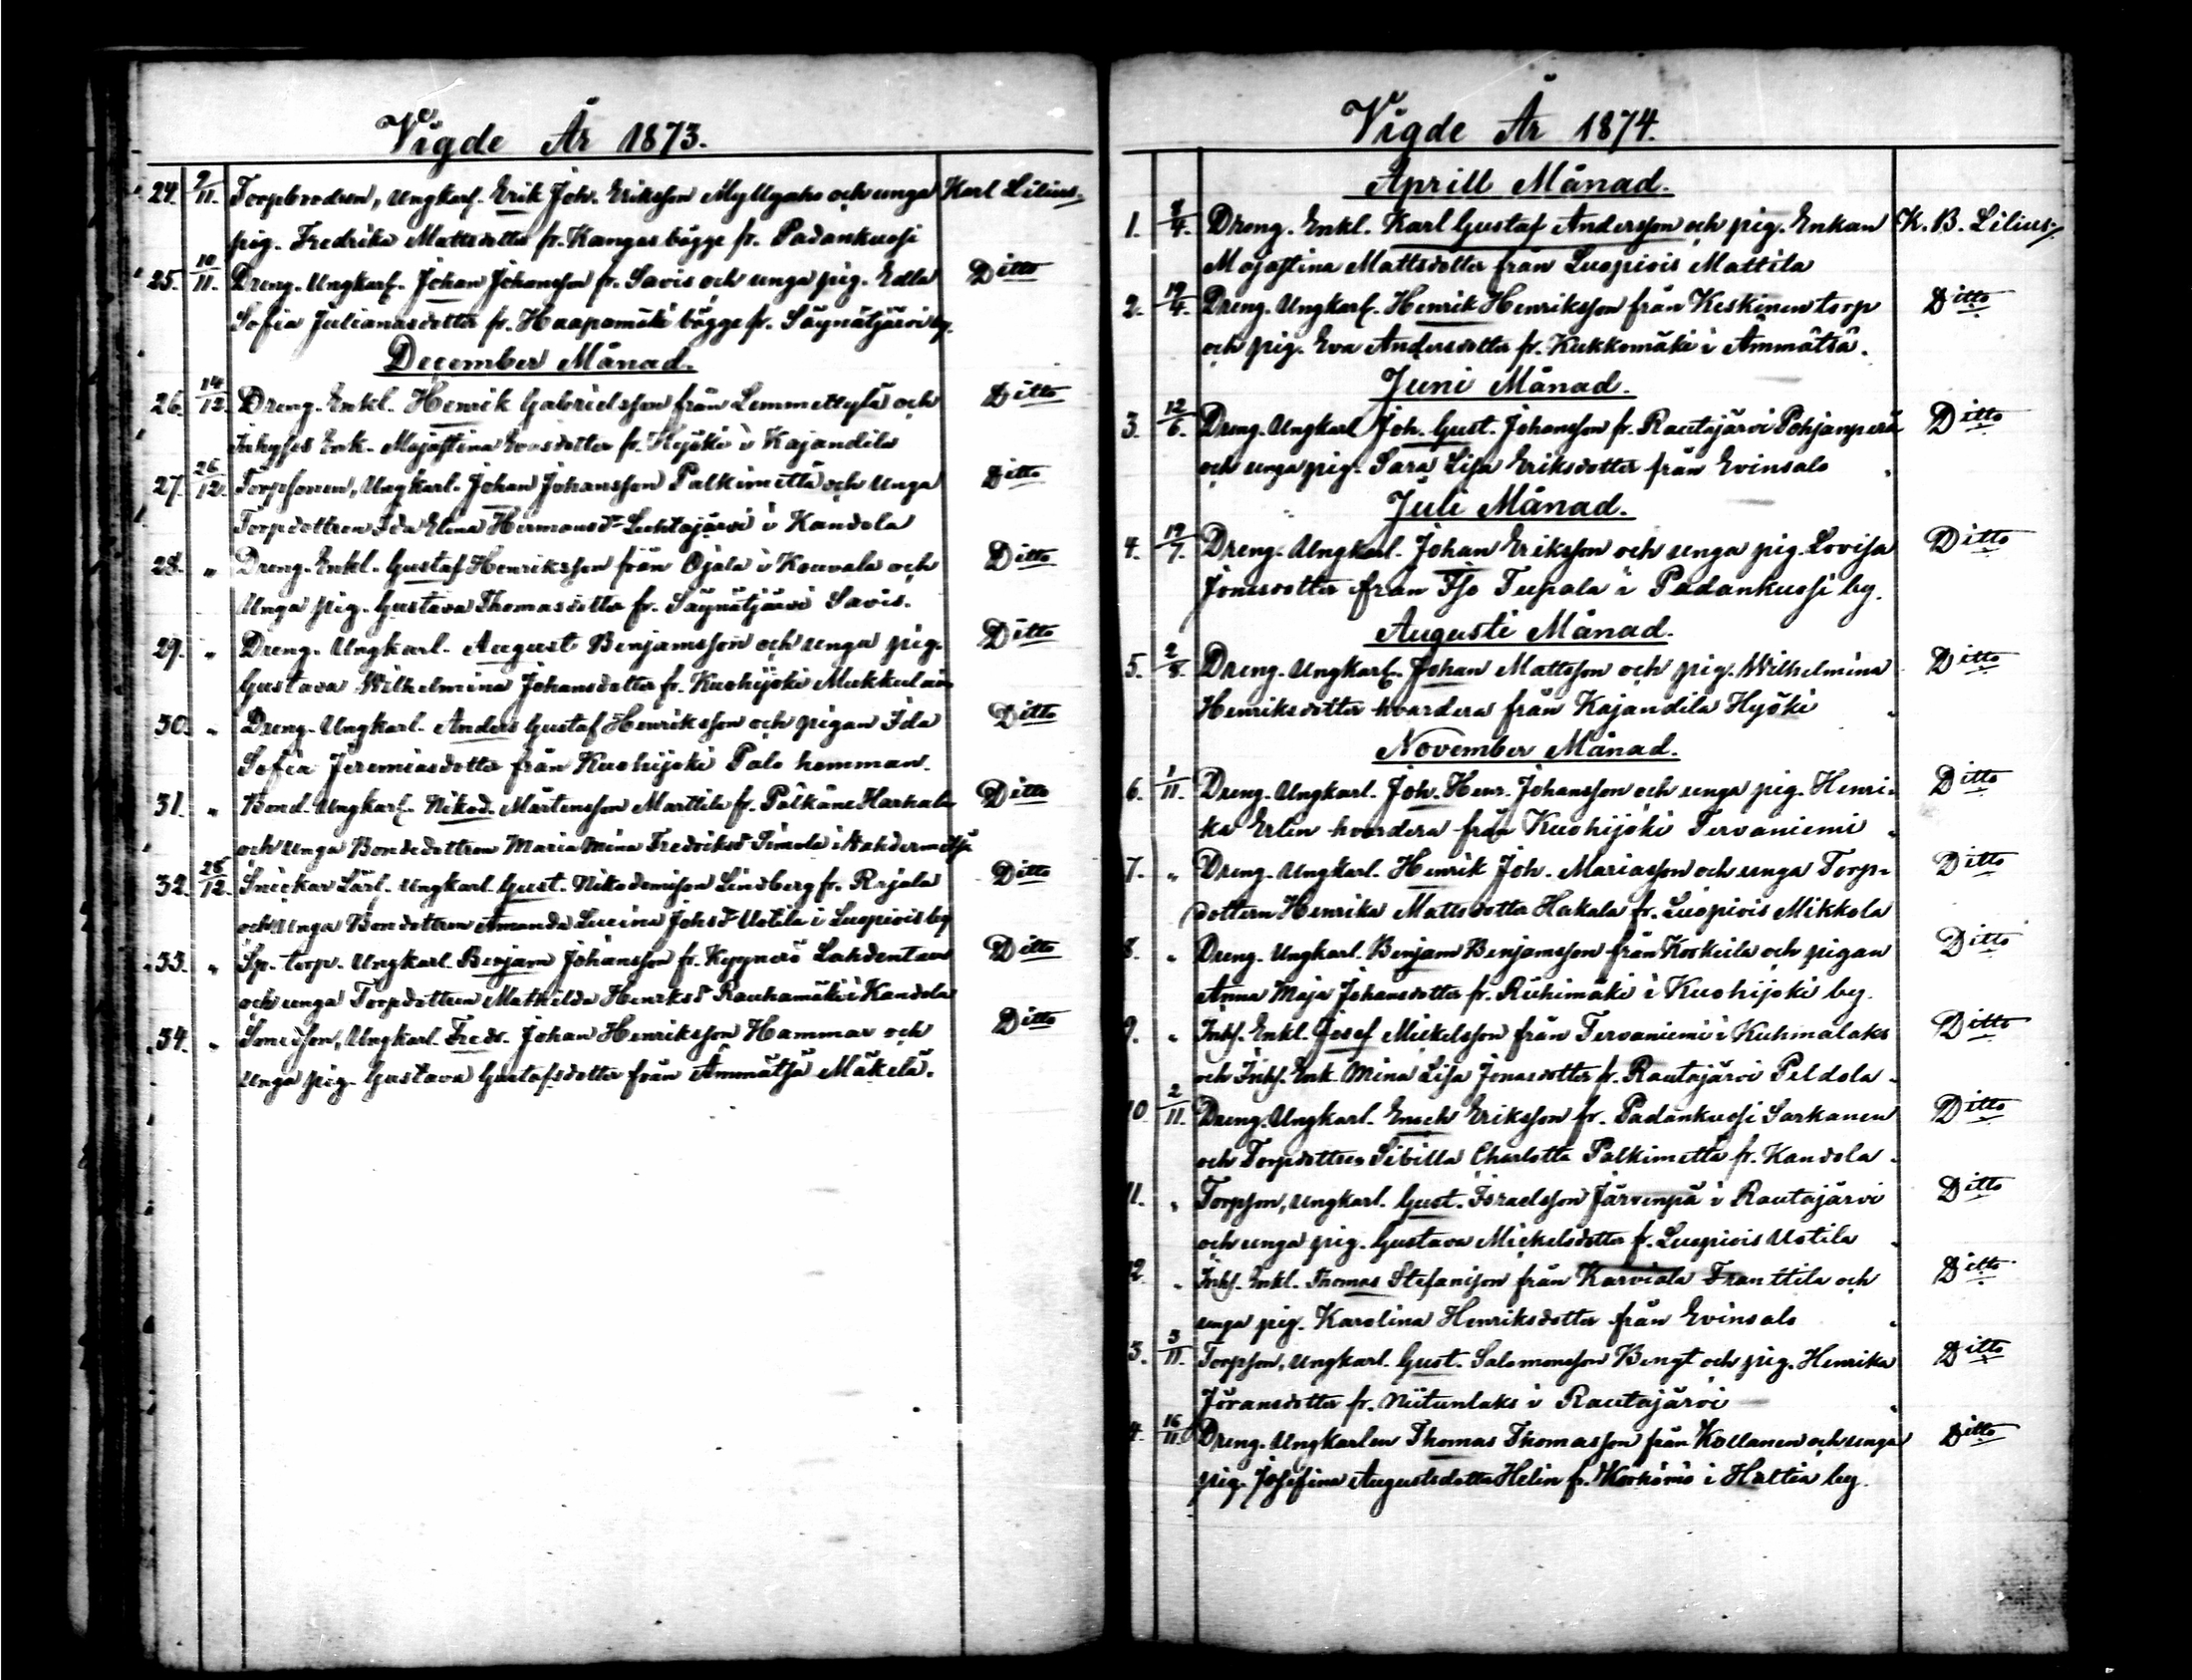 Vigde År 1873.
24. 9/11. Torpbrodren, Ungkarl. Erik Joh. Eriksson Myllyaho och unga Karl Lilius.
pig. Fredrika Mattsdotter fr. Kangas bägge fr. Padankuosi
25. 10/11. Dreng. Ungkarl. Johan Johansson fr. Savis och unga pig. Edla Ditto
Sofia Julianasdotter fr. Haapamäki bägge fr. Säynätjärvi by.
December Månad.
26. 14/12. Dreng. Enkl. Henrik Gabrielsson från Lemmettylä och Ditto
Inhyses Enk. Majastina Evasdotter fr. Hyöki i Kajandila
27. 26/12. Torpsonen, Ungkarl. Johan Johansson Palkimetta och Unga Ditto
Torpdottren Ida Elina Hermansdr Luhtajärvi i Kandola
28. " Dreng. Enkl. Gustaf Henriksson från Ojala i Kouvala och Ditto
Unga pig. Gustava Thomasdotter fr. Säynätjärvi Savis.
29. " Dreng. Ungkarl. August Benjamsson och unga pig. Ditto
Gustava Wilhelmina Johansdotter fr. Kuohijoki
30. " Dreng. Ungkarl. Anders Gustaf Henriksson och pigan Ida Ditto
Sofia Jeremiasdotter från Kuohijoki Palo hemman.
31. " Bond. Ungkarl. Nikod. Mårtensson Marttila fr. Pälkäne Harhala Ditto
och Unga Bondedottren Maria Mina Fredriksd Simola i
32. 28/12. Snickar Lärl. Ungkarl. Gust. Nikodemisson Lindberg fr. Rajala Ditto
och Unga Bondottren Amanda Lucina Johsdr Uotila i Luopiois by
33. " Sp. torp. Ungkarl. Benjam Johansson fr. Kyynärö Ditto
och unga Torpdottren Mathilda Henriksd Rauhamäki i Kandola
34. " Smedson, Ungkarl. Fredr. Johan Henriksson Hammar och Ditto
unga pig. Gustava Gustafsdotter från Ämmätsä Mäkelä.
Vigde År 1874.
Aprill Månad.
1. 4. Dreng. Enkl. Karl Gustaf Andersson och pig. Enkan K. B. Lilius
Majastina Mattsdotter från Luopiois Mattila
2. 19/4. Dreng. Ungkarl. Henrik Henriksson från Keskinen torp Ditto
och pig. Eva Andersdotter fr. Kukkomäki i Ämmätsä.
Juni Månad.
3. 12/6. Dreng. Ungkarl Joh. Gust. Johansson fr. Rautajärvi Pohjanperä Ditto
och unga pig. Sara Lisa Eriksdotter från Evinsalo
Juli Månad.
4. 19/7. Dreng. Ungkarl. Johan Eriksson och unga pig. Lovisa Ditto
Jonasdotter från Iso Tupala i Padankuosi by.
Augusti Månad.
5. 2/8. Dreng. Ungkarl. Johan Mattsson och pig. Wilhelmina Ditto
Henriksdotter hvardera från Kajandila Hyöki
November Månad.
6. 1/11. Dreng. Ungkarl. Joh. Henr. Johansson och unga pig. Henri- Ditto
ka Erlin hvardera från Kuohijoki Tervaniemi
7. " Dreng. Ungkarl. Henrik Joh. Mariasson och unga Torp- Ditto
dottern Henrika Mattsdotter Hakala fr. Luopiois Mikkola
8. " Dreng. Ungkarl. Benjam Benjamsson från Korkeila och pigan Ditto
Anna Maja Johansdotter fr. Riihimäki i Kuohijoki by.
9. " Inhs. Enkl. Josef Mickelsson från Tervaniemi i Kuhmalaks Ditto
och Inhs. Enk. Mina Lisa Jonasdotter fr. Rautajärvi Peldola.
10 2/11. Dreng. Ungkarl. Enoch Eriksson fr. Padankuosi Sarkanen Ditto
och Torpdottren Sibilla Charlotta Palkimetta fr. Kandola.
11. " Torpson, Ungkarl. Gust. Israelsson Järvenpä i Rautajärvi Ditto
och unga pig. Gustava Mickelsdotter fr. Luopiois Uotila
12 " Inhs. Enkl. Thomas Stefansson från Karviala Franttila och Ditto
unga pig. Karolina Henriksdotter från Evinsalo
3. 3/11. Torpson, Ungkarl. Gust. Salomonsson Bengt och pig. Henrika Ditto
Göransdotter fr. Niitunlaks i Rautajärvi
4. 16/11. Dreng. Ungkarlen Thomas Thomasson från Kollanen och unga Ditto
pig. Josefina Augustsdotter Helin fr. i Haltia by.